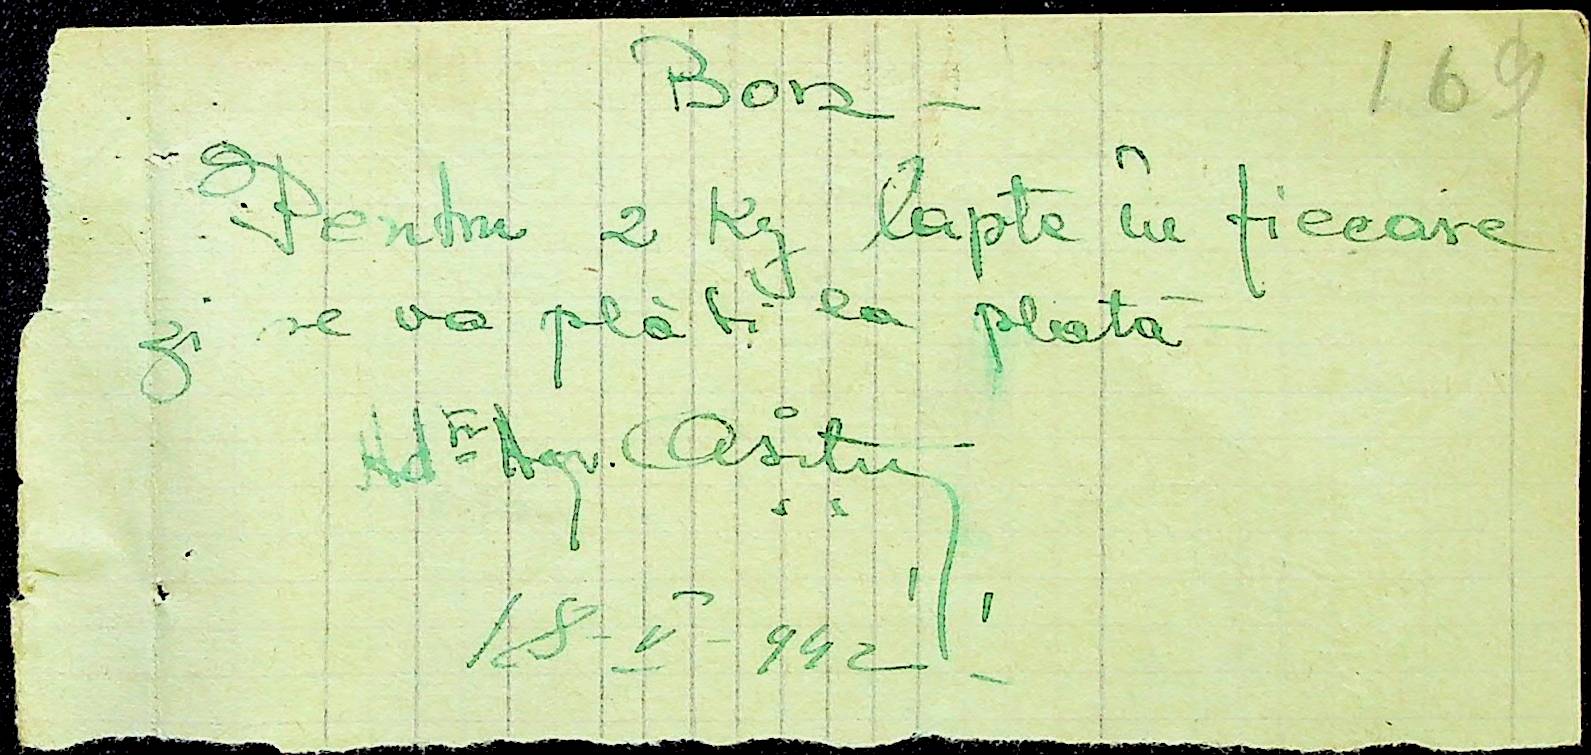 169
Bon -
Pentru 2 Kg lapte în fiecare
zi se va plăti la plată -
Agr.
18-V-942